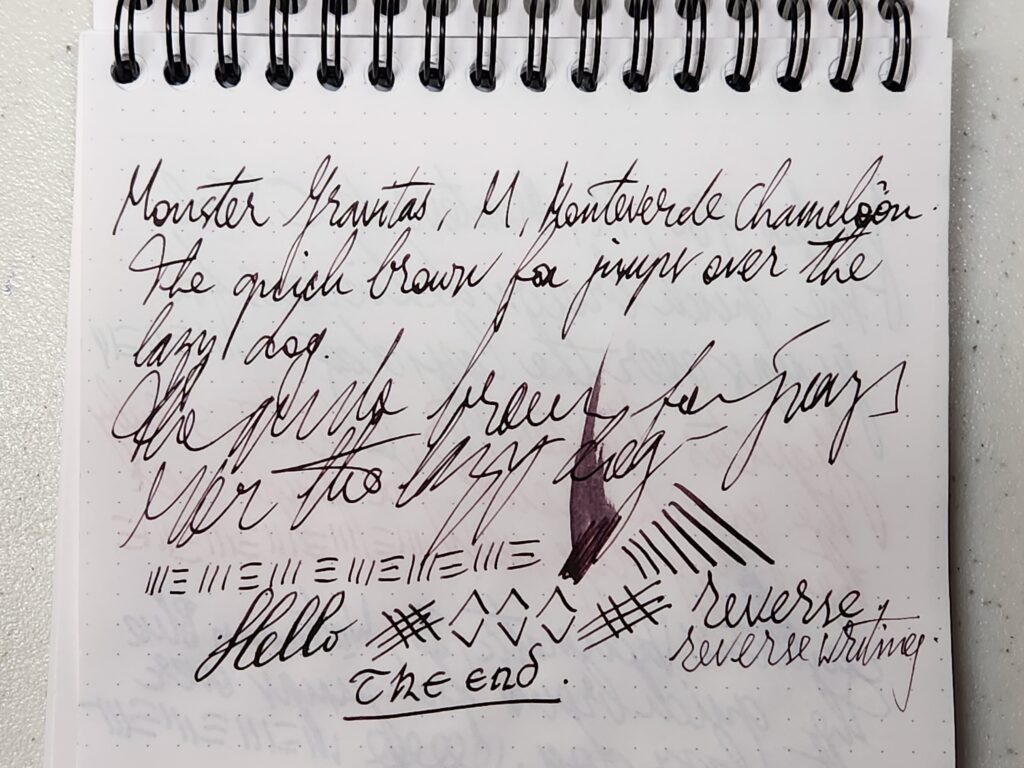 Monster Gravitas, M, Monteverde Chameloon.
The quick brown fox jumps over the
lazy dog.
The quick brown fox jumps
over the lazy dog
Hello reverse,
reverse writing.
The end.